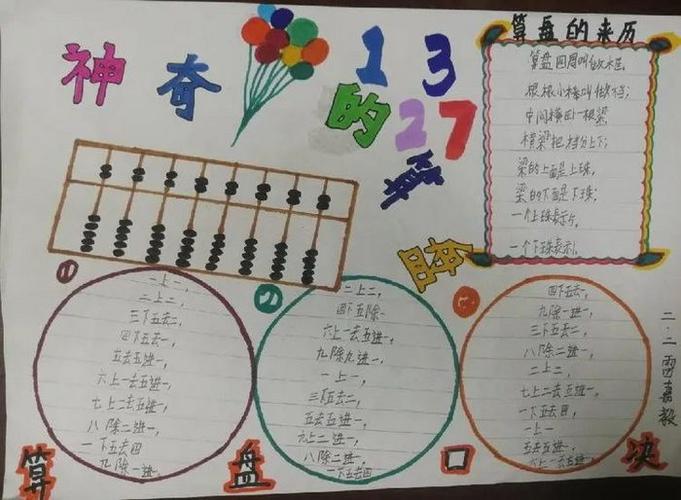 神奇的算盘
1 3
2 7
算盘的来历
算盘四周叫做木框,
根根小棒叫做档;
中间横卧一根梁,
横梁把档分上下;
梁的上面是上珠,
梁的下面是下珠;
一个上珠表示5,
一个下珠表示1.
①
一上一,
二上二,
三下五去二,
四下五去一,
五去五进一,
六上一去五进一,
七上二去五进一,
八除二进一,
一下五去四
九除一进一,
②
二上二,
四下五除一
六上一去五进一,
九除九进一,
一上一,
三下五去二,
五去五进一,
六上二进一,
一下五去四
③
四下五去一,
九除一进一,
三下五去二,
八除二进一,
二上二,
七上二去五进一,
一下五去四,
一上一
五去五进一,
六上一去五进一,
算盘口决
二.二 雷嘉毅